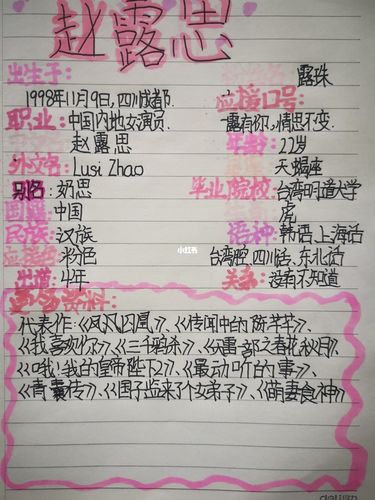 赵露思
出生于：
露珠
1998年11月9日,四川成都.
应援口号:
职业:中国内地女演员.
露有你,情思不变.
赵露思
年龄:22岁
外文名:Lusi Zhao
天蝎座
别名:奶思
毕业院校:台湾明道大学
国籍:中国
虎
民族:汉族
语种:韩语,上海话
应援色:粉色
台湾腔,四川话,东北话
出道:4年
关系:没有不知道
小红书
资料:
代表作:《凤囚凰》、《传闻中的陈芊芊》、
《我喜欢你》、《三千鸦杀》、《天雷一部之春花秋月》、
《哦!我的皇帝陛下2》、《最动听的事》、
《青囊传》、《国子监来了个女弟子》、《萌妻食神》